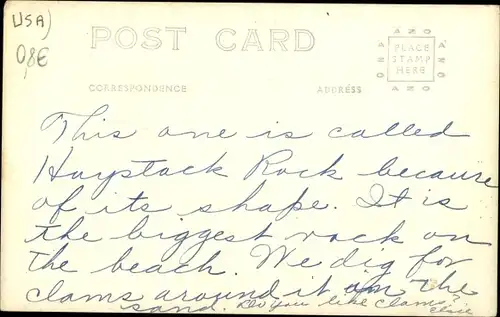 USA)
0,8€
POST CARD
AZO AZO AZO AZO
PLACE
STAMP
HERE
CORRESPONDENCE ADDRESS
This one is called
Haystack Rock because
of its shape. It is
the biggest rock on
the beach. We dig for
clams around it in the
sand. Do you like clams?
Elsie